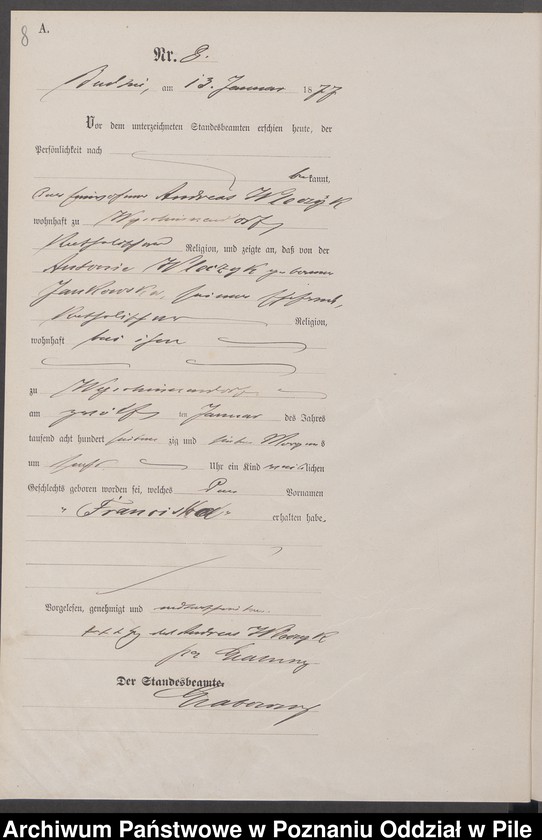 8 A.
Nr. 8.
am 13. Januar 1877
Vor dem unterzeichneten Standesbeamten erschien heute, der
Persönlichkeit nach
bekannt,
Der Andreas Wloczyk
wohnhaft zu
katholischer Religion, und zeigte an, daß von der
Antonie Wloczyk geborenen
Jankowska, seiner Ehefrau,
katholischer Religion,
wohnhaft bei ihm
zu
am zwölf ten Januar des Jahres
tausend acht hundert siebenzig und sieben Morgens
um sechs Uhr ein Kind weiblichen
Geschlechts geboren worden sei, welches den Vornamen
"Franciska" erhalten habe.
Vorgelesen, genehmigt und unterschrieben
des Andreas Wloczyk
Der Standesbeamte.
Archiwum Państwowe w Poznaniu Oddział w Pile